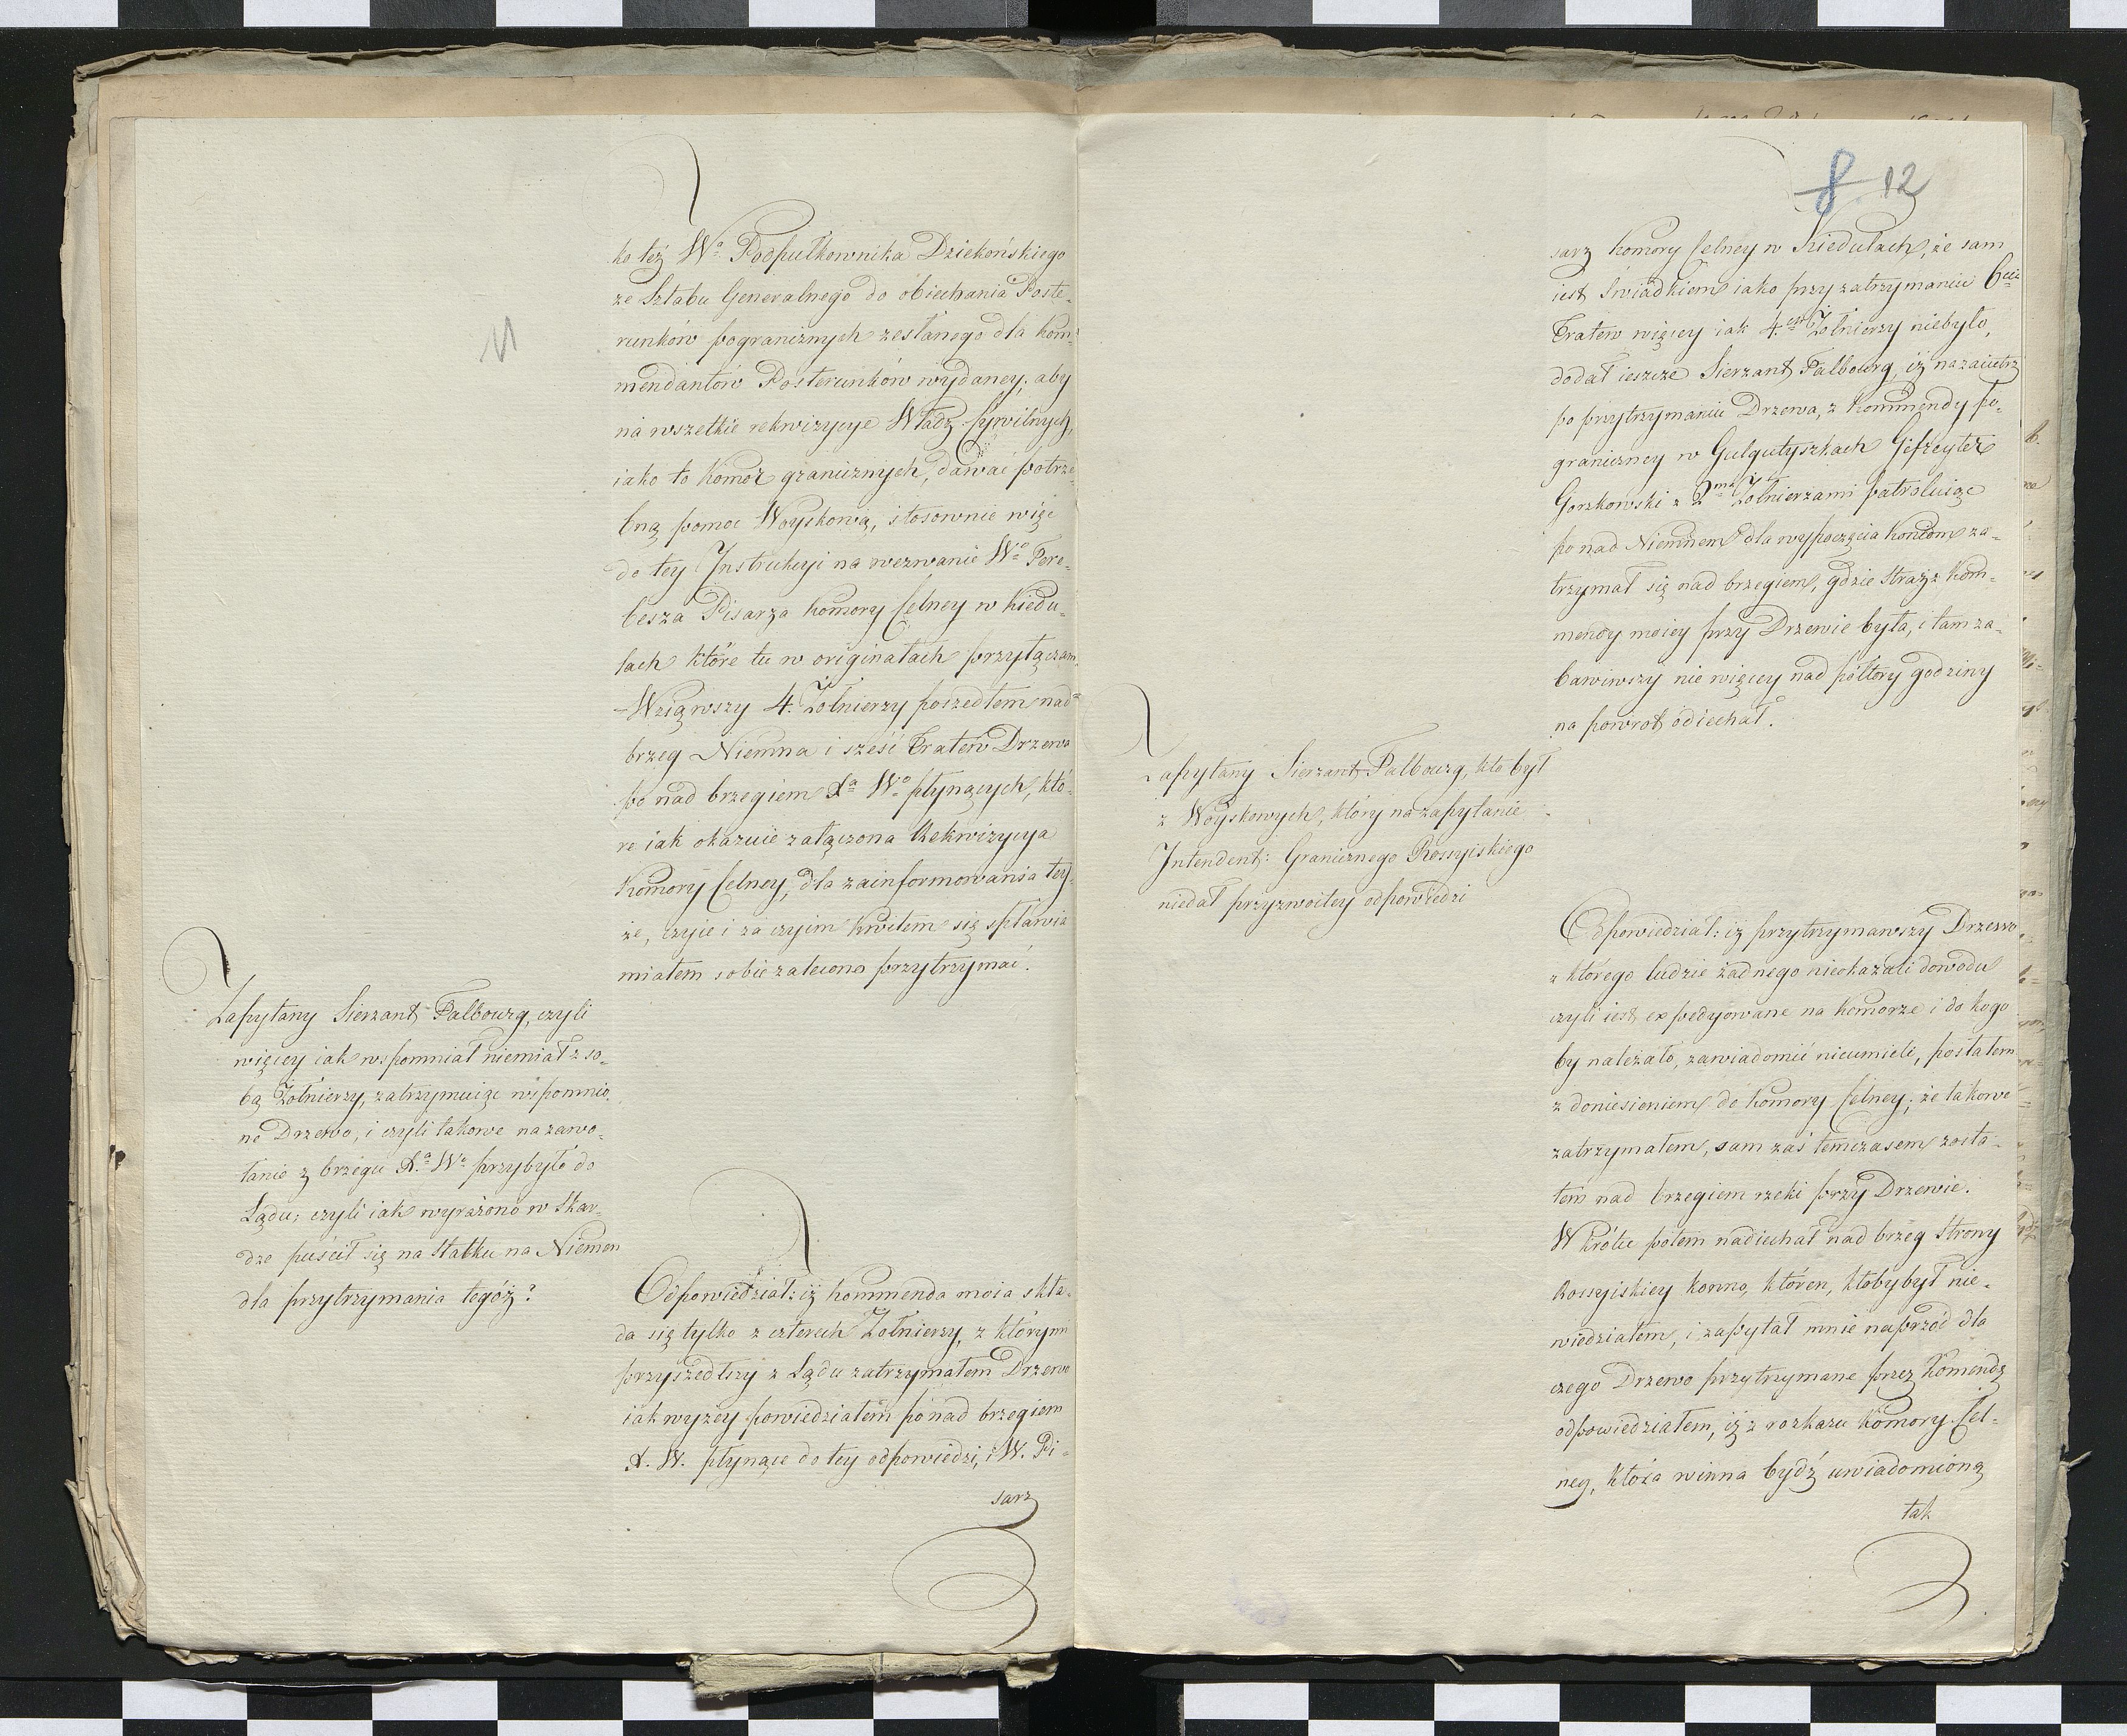 11
ko też Wo Podpułkownika Dziekońskiego
ze Sztabu Generalnego do obiechania Poste-
runków pogranicznych zesłanego dla kom-
mendantów Posterunków wydaney; aby
na wszelkie rekwizycye Władz Cywilnych,
iako to Komor granicznych, dawać potrze-
bną pomoc Woyskową, stosownie więc
do tey Instrukcyi na wezwanie Wo
Pisarza Komory Celney w Kiedu-
lach które tu w originałach przyłączam.
Wziąwszy 4. Żołnierzy poszedłem nad
brzeg Niemna i sześć Tratew Drzewa
po nad brzegiem Xa Wo płynących, któ-
re iak okazuie załączona Rekwizycya
Komory Celney, dla zainformowania tey-
że, czyie i za czyim kwitem się spławia
miałem sobie zalecono przytrzymać.
Zapytany Sierzant Falbourg, czyli
więcey iak wspomniał niemiał z so-
bą Żołnierzy, zatrzymuiąc wspomnio-
ne Drzewo, i czyli takowe na zawo-
łanie z brzegu Xa Wo przybyło do
Lądu; czyli iak wyrażono w Skar-
dze puścił się na Statku na Niemen
dla przytrzymania tegóż?
Odpowiedział: iż kommenda moia skła-
da się tylko z czterech Żołnierzy, z którymi
przyszedłszy z Lądu zatrzymałem Drzewo
iak wyżey powiedziałem po nad brzegiem
X. W. płynące do tey odpowiedzi, i W. Pi-
sarz
8 12
sarz Komory Celney w Kiedulach, że sam
iest świadkiem iako przy zatrzymaniu 6ciu
Tratew więcey iak 4ech Żołnierzy niebyło,
dodał ieszcze Sierzant Falbourg, iż nazaiutrz
po przytrzymaniu Drzewa, z Kommendy po-
graniczney w Gulgutyszkach Gifreyter
Gorzkowski z 2ma Żołnierzami patroluiąc
po nad Niemnem dla wypoczęcia koniom za-
trzymał się nad brzegiem, gdzie Straż z Kom-
mendy moiey przy Drzewie była, i tam za-
bawiwszy nie więcey nad półtory godziny
na powrot odiechał.
Zapytany Sierzant Falbourg, kto był
z Woyskowych, który na zapytanie
Intendent: Granicznego Rossyiskiego
niedał przyzwoitey odpowiedzi
Odpowiedział: iż przytrzymawszy Drzewo
z którego ludzie żadnego nieokazali dowodu
czyli iest expedyowane na Komorze i do kogo
by należało, zawiadomić nieumieli, posłałem
z doniesieniem do Komory Celney; że takowe
zatrzymałem, sam zaś temczasem zosta-
łem nad brzegiem rzeki przy Drzewie.
Wkrótce potem nadiechał nad brzeg Strony
Rossyiskiey konno, któren, ktoby był nie-
wiedziałem, i zapytał mnie naprzód dla
czego Drzewo przytrzymane przez Komendę
odpowiedziałem, iż z rozkazu Komory Cel-
ney, która winna bydź uwiadomioną
tak